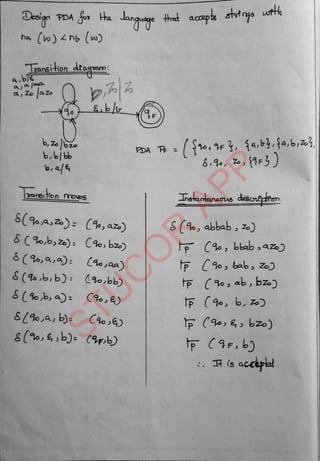 Design PDA for the language that accepts strings with
na (w) < nb (w)
Transition diagram:
a, b/ε
a, a/aa
a, Z0/aZ0
q0
ε, b/b
qF
b, Z0/bZ0
b, b/bb
b, a/ε
PDA P = ( {q0, qF}, {a, b}, {a, b, Z0},
δ, q0, Z0, {qF} )
Transition moves
δ(q0, a, Z0) = (q0, aZ0)
δ(q0, b, Z0) = (q0, bZ0)
δ(q0, a, a) = (q0, aa)
δ(q0, b, b) = (q0, bb)
δ(q0, b, a) = (q0, ε)
δ(q0, a, b) = (q0, ε)
δ(q0, ε, b) = (qF, b)
Instantaneous description
δ(q0, abbab, Z0)
⊢p (q0, bbab, aZ0)
⊢p (q0, bab, Z0)
⊢p (q0, ab, bZ0)
⊢p (q0, b, Z0)
⊢p (q0, ε, bZ0)
⊢p (qF, b)
∴ It is accepted
STUCOR APP